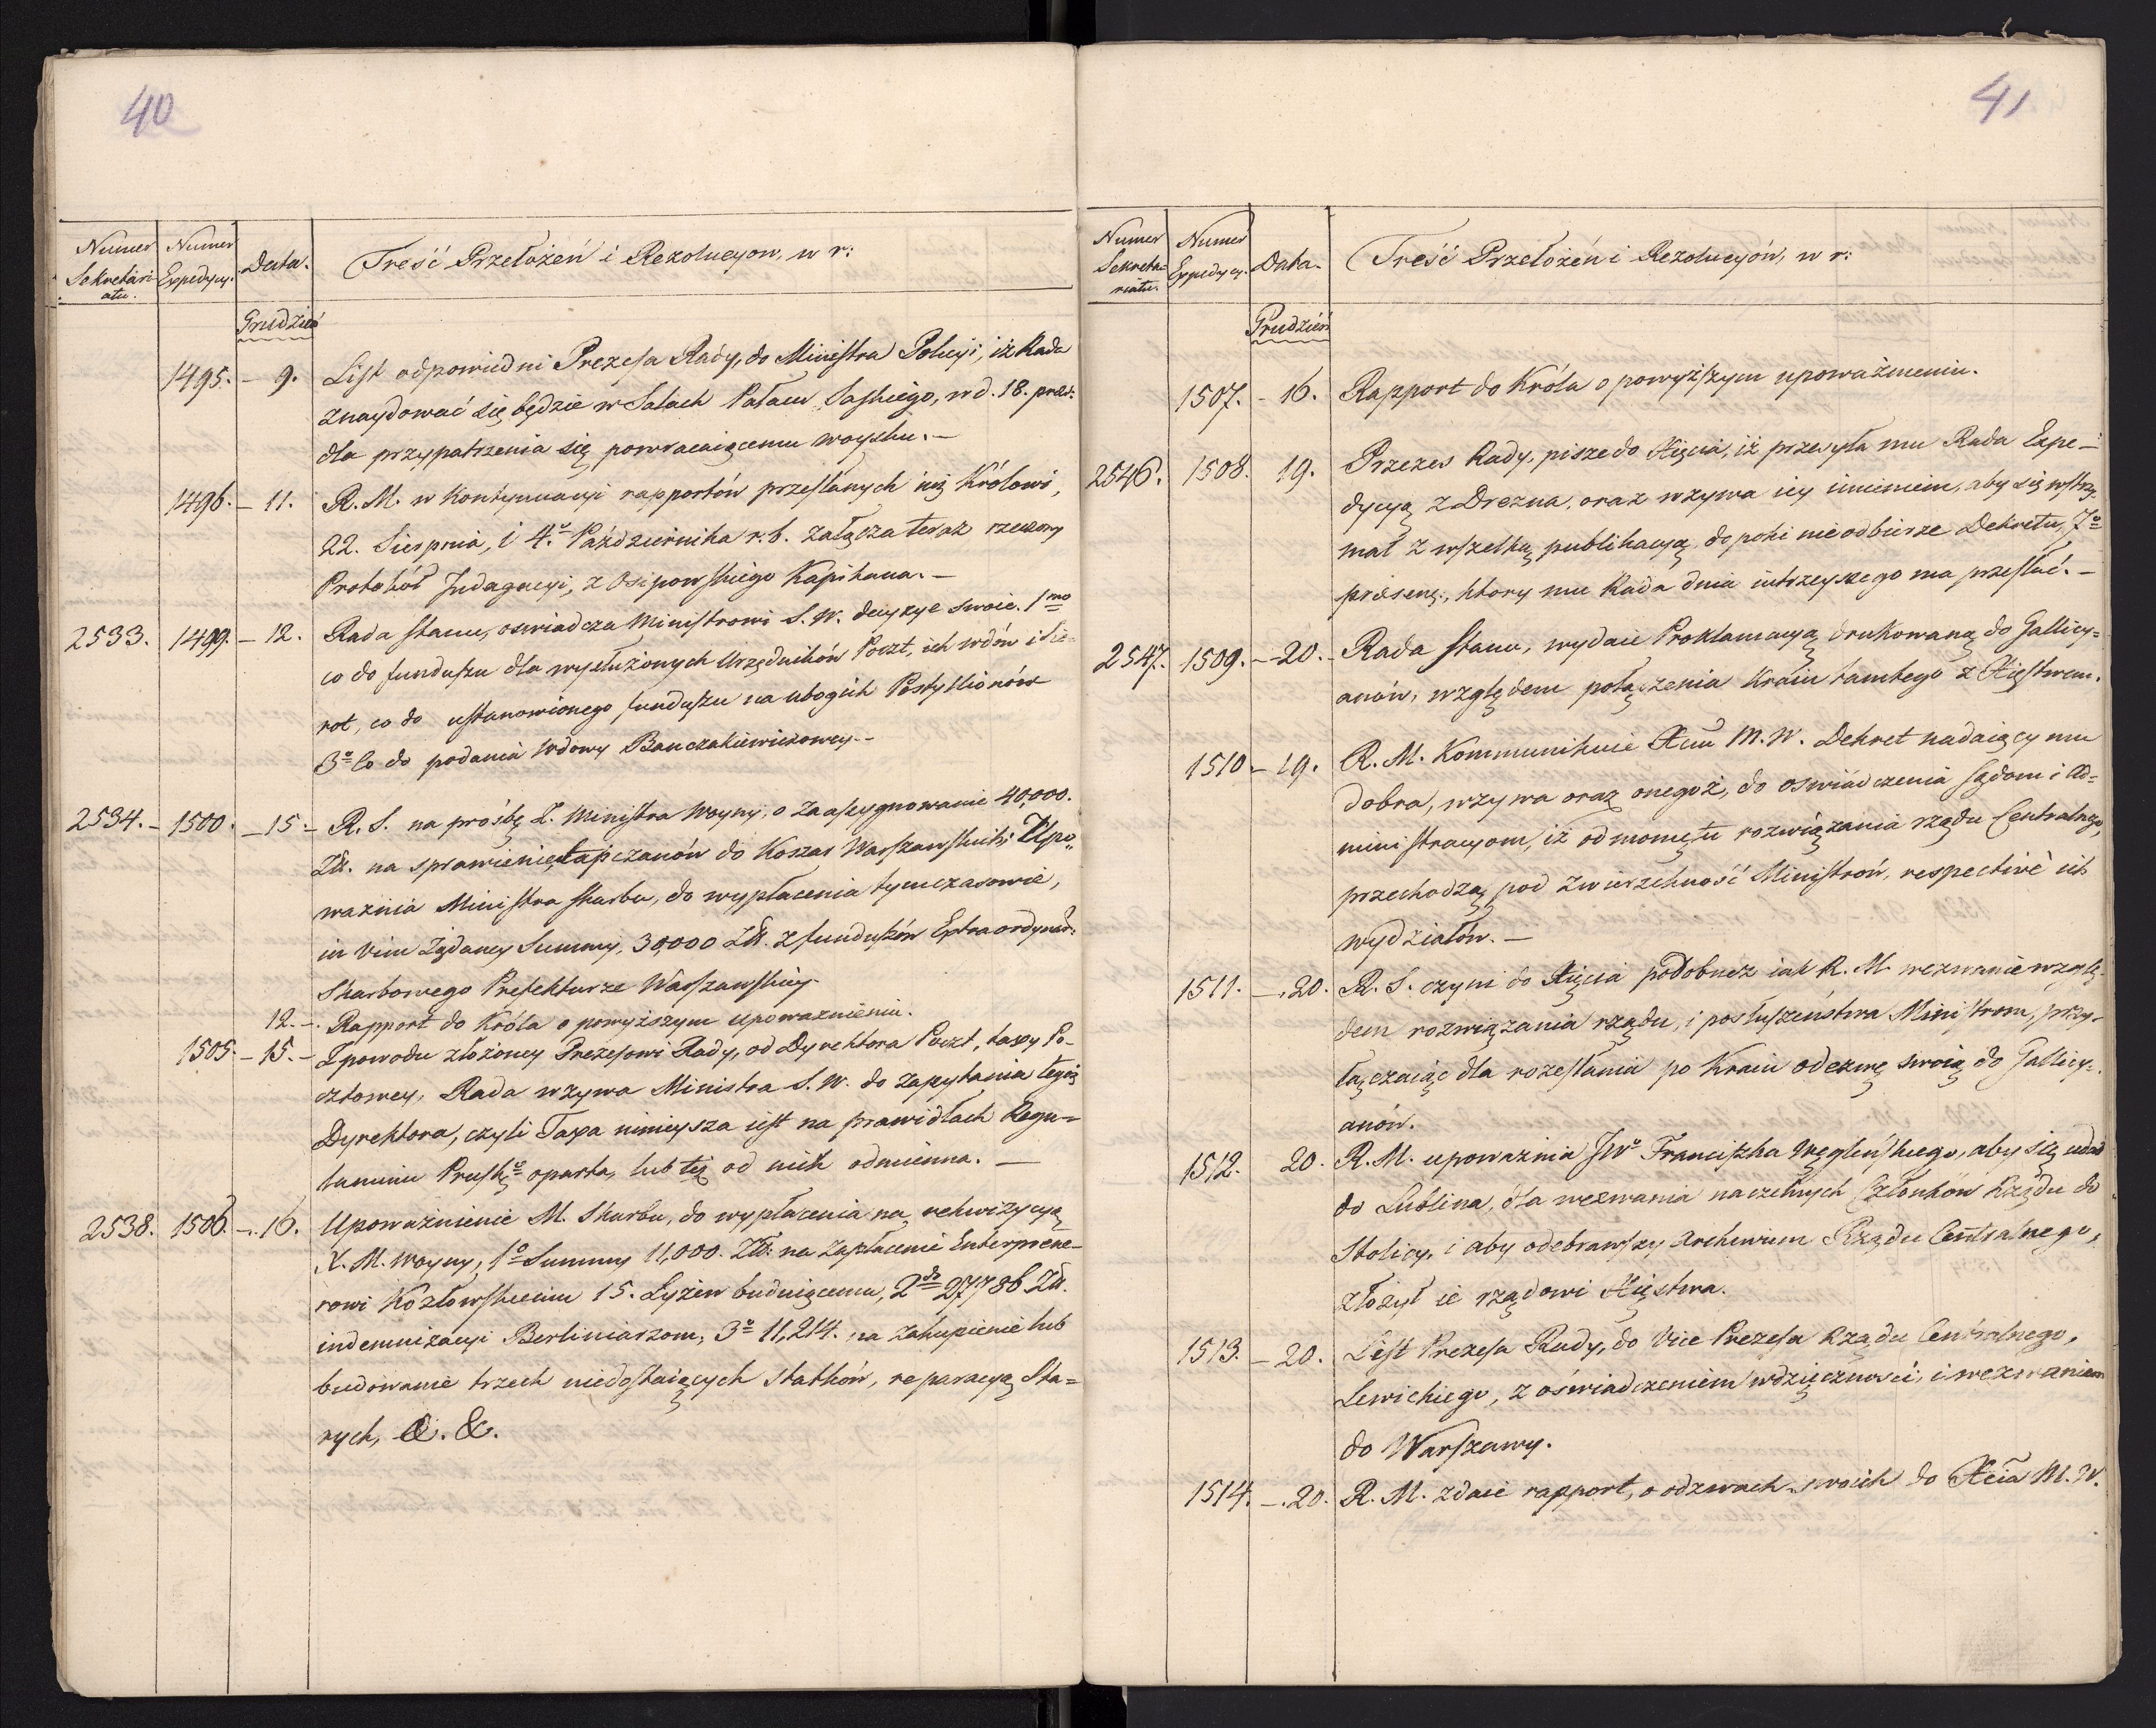 40
Numer Sekretariatu. Numer Expedycy. Data. Treść Przełożeń i Rezolucyon, w r:
Grudzień
1495. - 9. List odpowiedni Prezesa Rady, do Ministra Policyi, iż Rada
znaydować się będzie w Salach Pałacu Saskiego, w d. 18. praes:
dla przypatrzenia się powracaiącemu woysku. -
1496. - 11. R. M. w Kontynuacyi rapportów przesłanych iuż Królowi,
22. Sierpnia, i 4. Października r. b. załącza teraz rzeczony
Protokół Indagacyi, z Osipowskiego Kapitana. -
2533. 1499. - 12. Rada Stanu, oswiadcza Ministrowi S. W. decyzye swoie. 1mo
co do funduszu dla wysłużonych Urzędników Poczt, ich wdów i Sie-
rot, co do ustanowionego funduszu na ubogich Postyllionów
3o Co do podania Wdowy Banczakiewiczowey. -
2534. - 1500. - 15. - R. S. na prośbę Z. Ministra Woyny, o zaassygnowanie 40,000.
Zł. na sprawienie tapczanów do Koszar Warszawskich; Upo„
ważnia Ministra skarbu, do wypłacenia tymczasowie,
in vim Żądaney Summy, 30,000 Zł. z funduszów Extraordynar:
Skarbowego Prefekturze Warszawskiey.
12. - . Rapport do Króla o powyższym upoważnieniu.
1505. - 15. - Z powodu złożoney Prezesowi Rady, od Dyrektora Poczt, taxy Po-
cztowey, Rada wzywa Ministra S. W. do zapytania tegoż
Dyrektora, czyli Taxa ninieysza iest na prawidłach Regu-
laminu Prusko oparta, lub też od nich odmienna. -
2538. 1506. - 16. Upoważnienie M. Skarbu, do wypłacenia na rekwizycyą
X. M. Woyny, 1o Summy 11,000. Zł. na Zapłacenie Enterprene-
rowi Kozłowskiemu 15. Łyżew buduiącemu, 2do 27786 Zł.
indemnizacyi Berliniarzom, 3o 11,214. na Zakupienie lub
budowanie trzech niedostaiących Statków, reparacyą Sta=
rych, &. &.
41
Numer Sekretariatu. Numer Expedycy. Data. Treść Przełożeń i Rezolucyów, w r:
Grudzień
1507. - 16. Rapport do Króla o powyższym upoważnieniu.
2546. 1508. 19. Prezes Rady, pisze do Xięcia, iż przesyła mu Rada Expe-
dycyą z Drezna, oraz wzywa iey imieniem, aby się wstrzy-
mał z wszelką publikacyą, dopoki nie odbierze Dekretu, 7o
praesenq:, ktory mu Rada dnia iutrzeyszego ma przesłać. -
2547. 1509. - 20. - Rada Stanu, wydaie Proklamacyą drukowaną do Gallicy=
anów, względem połączenia Kraiu tamtego z Xięstwem.
1510 - 19. R. M. Kommunikuie Xciu M. W. Dekret nadaiący mu
dobra, wzywa oraz onegoż, do oswiadczenia sądom i Ad=
ministracyom, iż od momętu rozwiązania rządu Centralnego,
przechodzą pod Zwierzchność Ministrów, respectivè ich
wydziałów. -
1511. - . 20. R. S. czyni do Xięcia podobnez iak R. M. wezwanie wzglę-
dem rozwiązania rządu, i posłuszeństwa Ministrom, przy-
łączaiąc dla rozesłania po Kraiu odezwę swoią do Gallicy-
anów.
1512. 20. R. M. upoważnia JWo Franciszka Węgleńskiego, aby się udał
do Lublina, dla wezwania naczelnych Członków Rządu do
Stolicy, i aby odebrawszy Archiwum Rządu Centralnego,
złożył ie rządowi Xięstwa.
1513. - 20. List Prezesa Rady, do Vice Prezesa Rządu Centralnego,
Lewickiego, z oświadczeniem wdzięczności, i wezwaniem
do Warszawy.
1514. - . 20. R. M. zdaie rapport, o odezwach swoich do Xcia M. W.